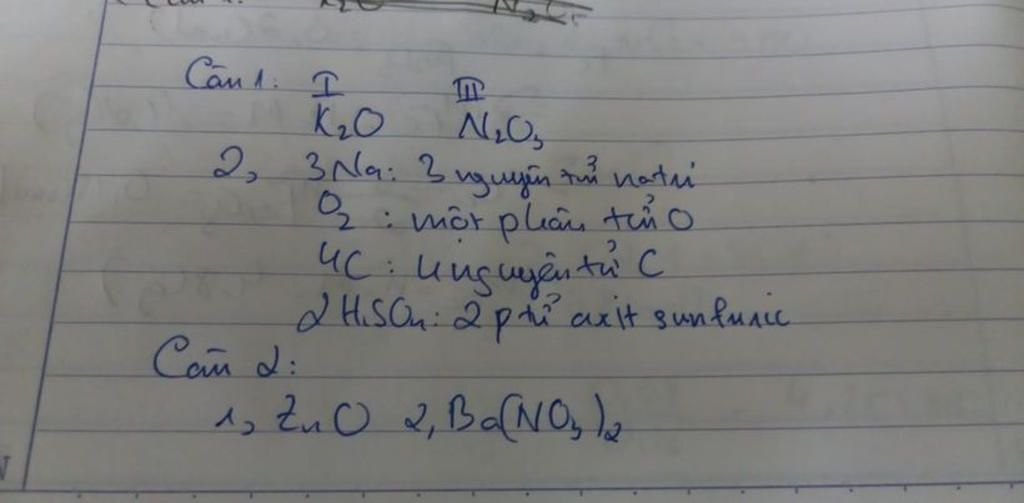 Câu 1: I III
K₂O N₂O₃
2, 3Na: 3 nguyên tử natri
O₂: một phân tử O
4C: 4 nguyên tử C
2H₂SO₄: 2 p tử axit sunfuric
Câu 2:
1, ZnO 2, Ba(NO₃)₂